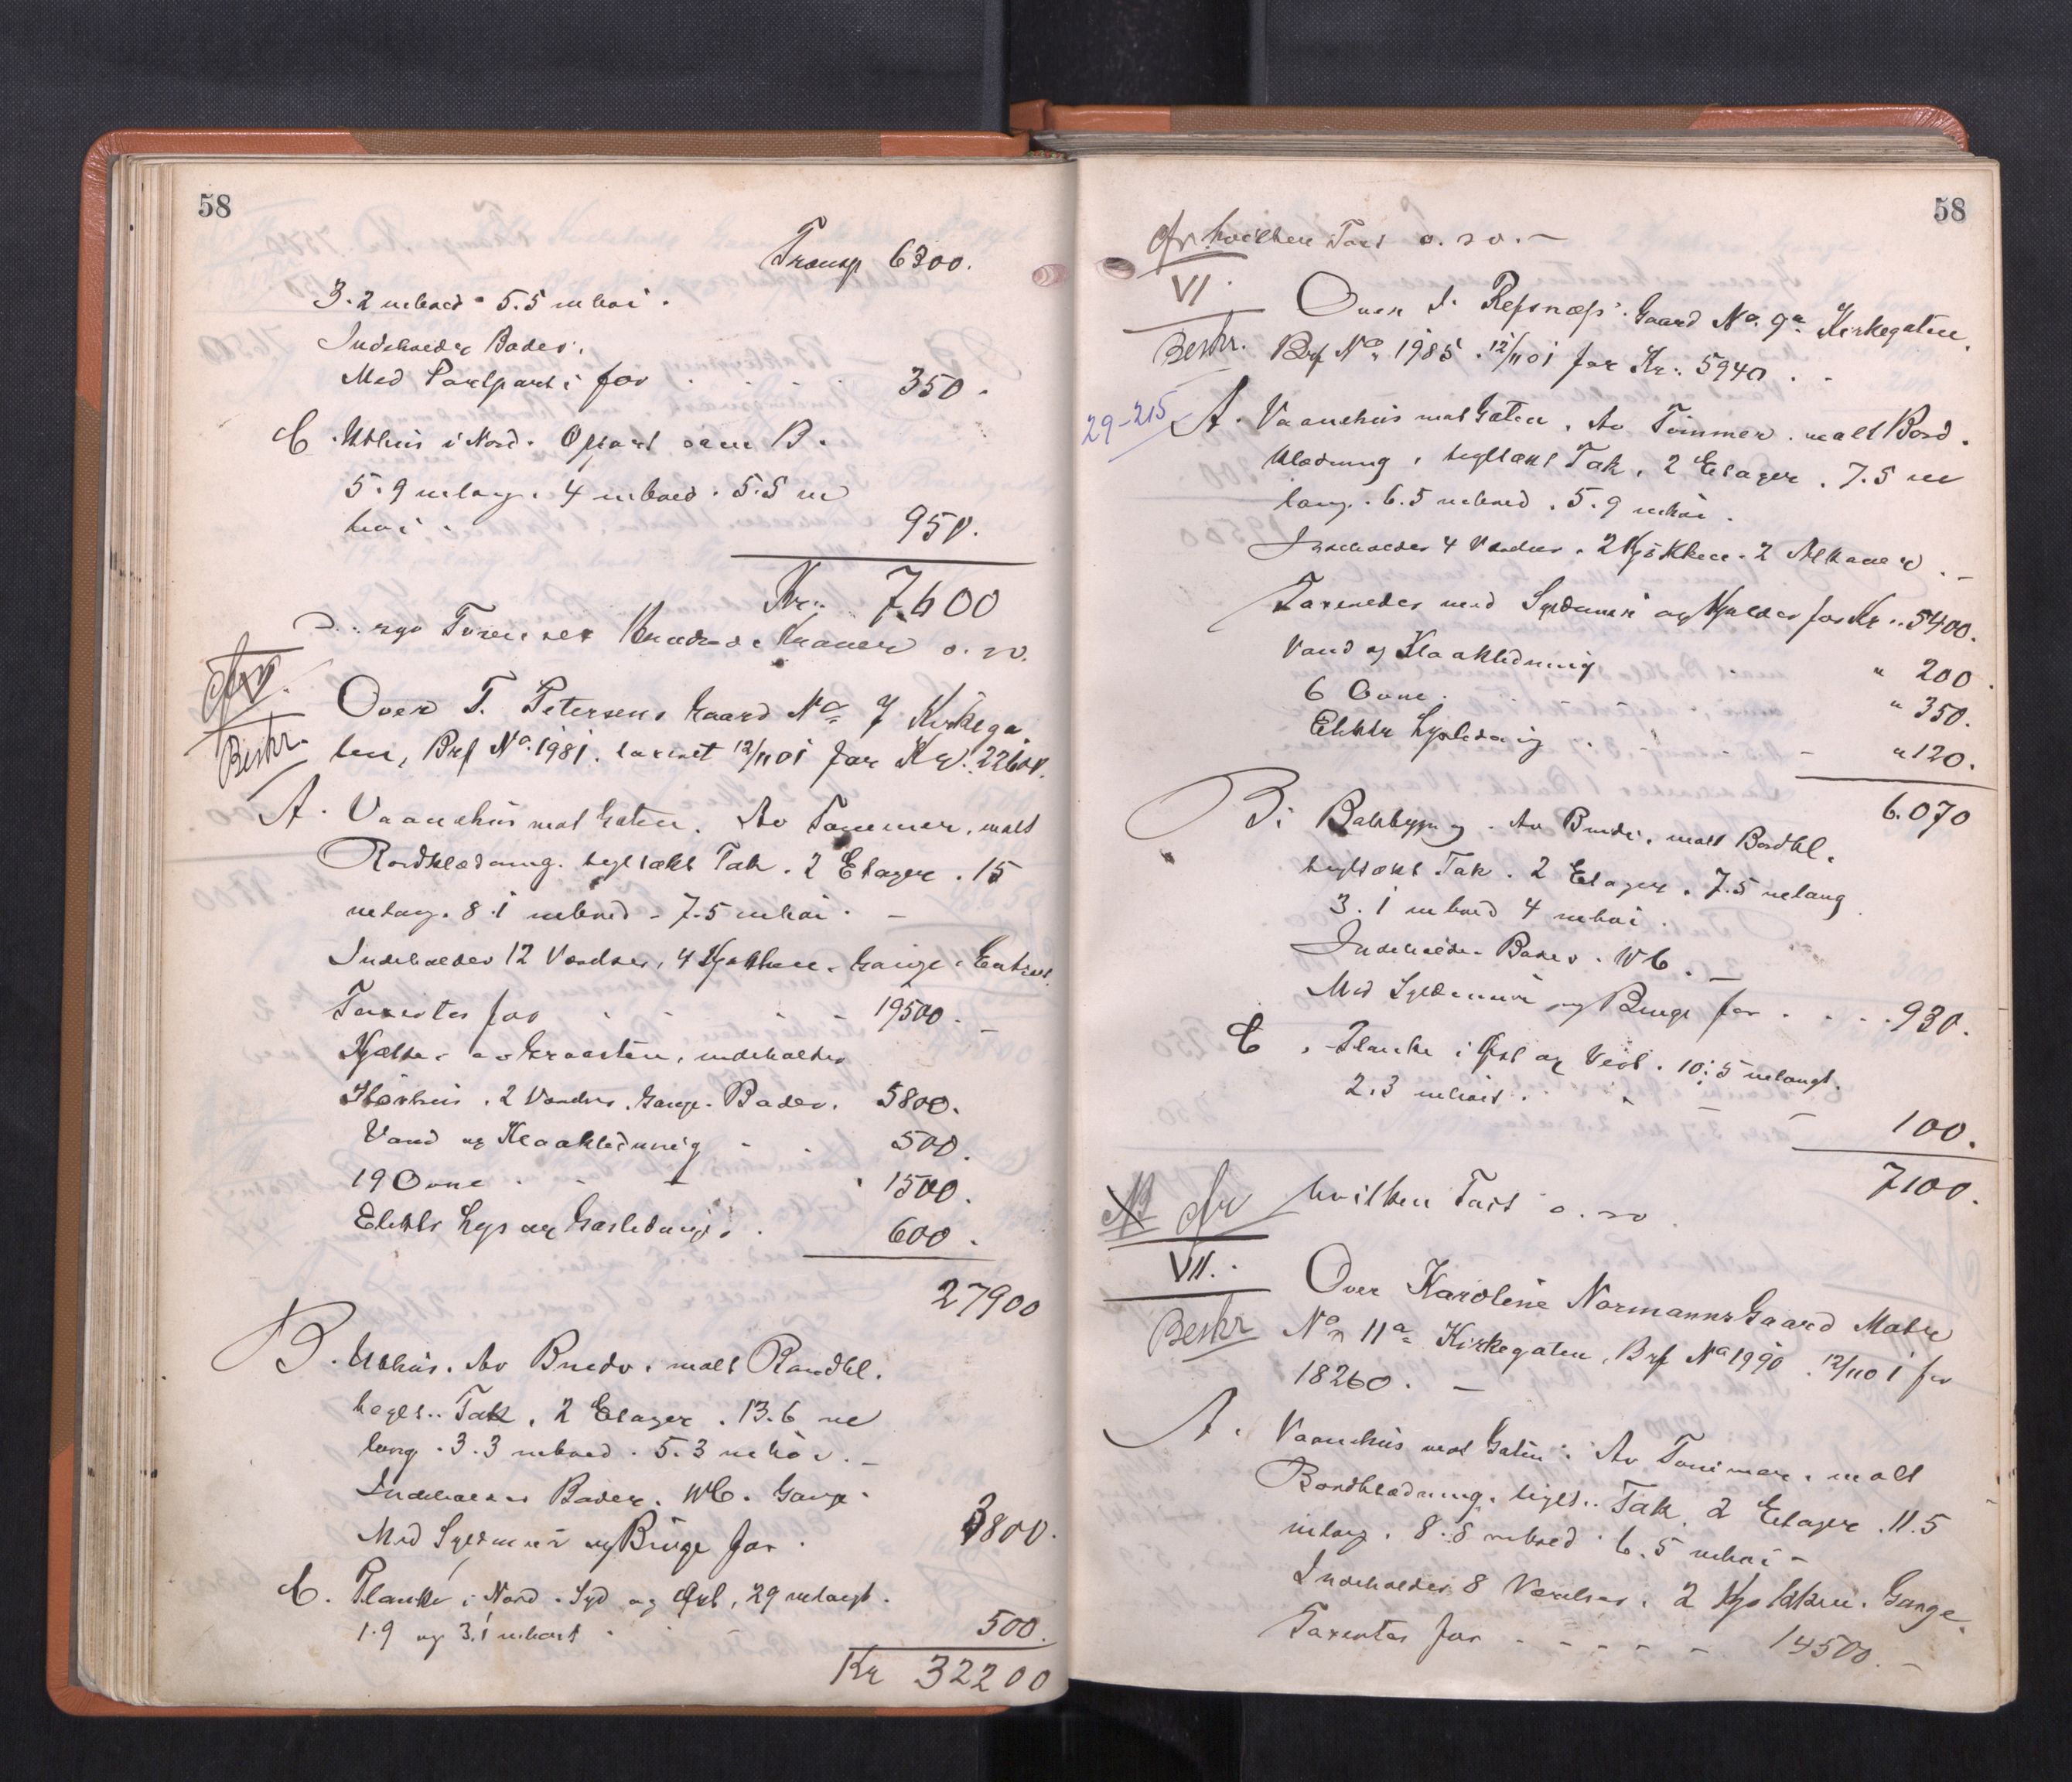 58
Transp 6300.
3.2 m bred. 5.5 m høi.
Indeholder Boder.
Med Portparti for 350.
C. Uthus i Nord. Opført som B.
5.9 m lang. 4 m bred. 5.5 m
høi. 950.
Kr. 7600
o. s. v.
Beskr.
Over T. Petersens Gaard No. 7 Kirkega-
ten, Brf No. 1981. taxeret 12/11 01 for Kr. 22600.
A. Vaanehus mot Gaten. Av Tømmer, malt
Bordklædning. tegltækt Tak. 2 Etager. 15
m lang. 8.1 m bred. 7.5 m høi. –
Indeholder 12 Værelser, 4 Kjøkken. Gange. Entreer.
Taxertes for 19500.
Kjælder av Graasten, indeholder
2 Værelser. Gange. Boder. 5800.
Vand og Kloakledning 500.
19 Ovne 1500.
Elektr Lys og Gasledninger 600.
27900
B. Uthus. Av Bindv. malt Bordkl.
teglt. Tak. 2 Etager. 13.6 m
lang. 3.3 m bred. 5.3 m høi. –
Indeholder Boder. WC. Gange.
Med Syldmur og Binge for 3800.
C. Planke i Nord. Syd og Øst, 29 m langt.
1.9 og 3.1 m høit 500.
Kr 32200
58
hvilken Taxt o. s. v. –
VI.
Over I. Refsnæs' Gaard No. 9a Kirkegaten.
Beskr. Brf No. 1985. 12/11 01 for Kr. 5940.
29-215
A. Vaanehus mot Gaten. Av Tømmer. malt Bord-
klædning, tegltækt Tak. 2 Etager. 7.5 m
lang. 6.5 m bred. 5.9 m høi.
Indeholder 4 Værelser. 2 Kjøkken. 2 Alkover. –
Taxeredes med Syldmur og Kjælder for Kr. 5400.
Vand og Kloakledning " 200.
6 Ovne. " 350.
Elektr Lysledning " 120.
6.070
B. Bakbygning. Av Bindv. malt Bordkl.
tegltækt Tak. 2 Etager. 7.5 m lang
3.1 m bred 4 m høi.
Indeholder Boder. WC. –
Med Syldmur og Binge for 930.
C. Planke i Øst og Vest. 10.5 m langt.
2.3 m høit. 100.
7100.
hvilken Taxt o. s. v.
VII.
Over Karoline Normanns Gaard Matr
Beskr No. 11a Kirkegaten, Brf No 1990. 12/11 01 for
18260. –
A. Vaanehus mot Gaten. Av Tømmer. malt
Bordklædning. teglt. Tak. 2 Etager. 11.5
m lang. 8.8 m bred. 6.5 m høi –
Indeholder 8 Værelser. 2 Kjøkken. Gange.
Taxertes for 14500. –